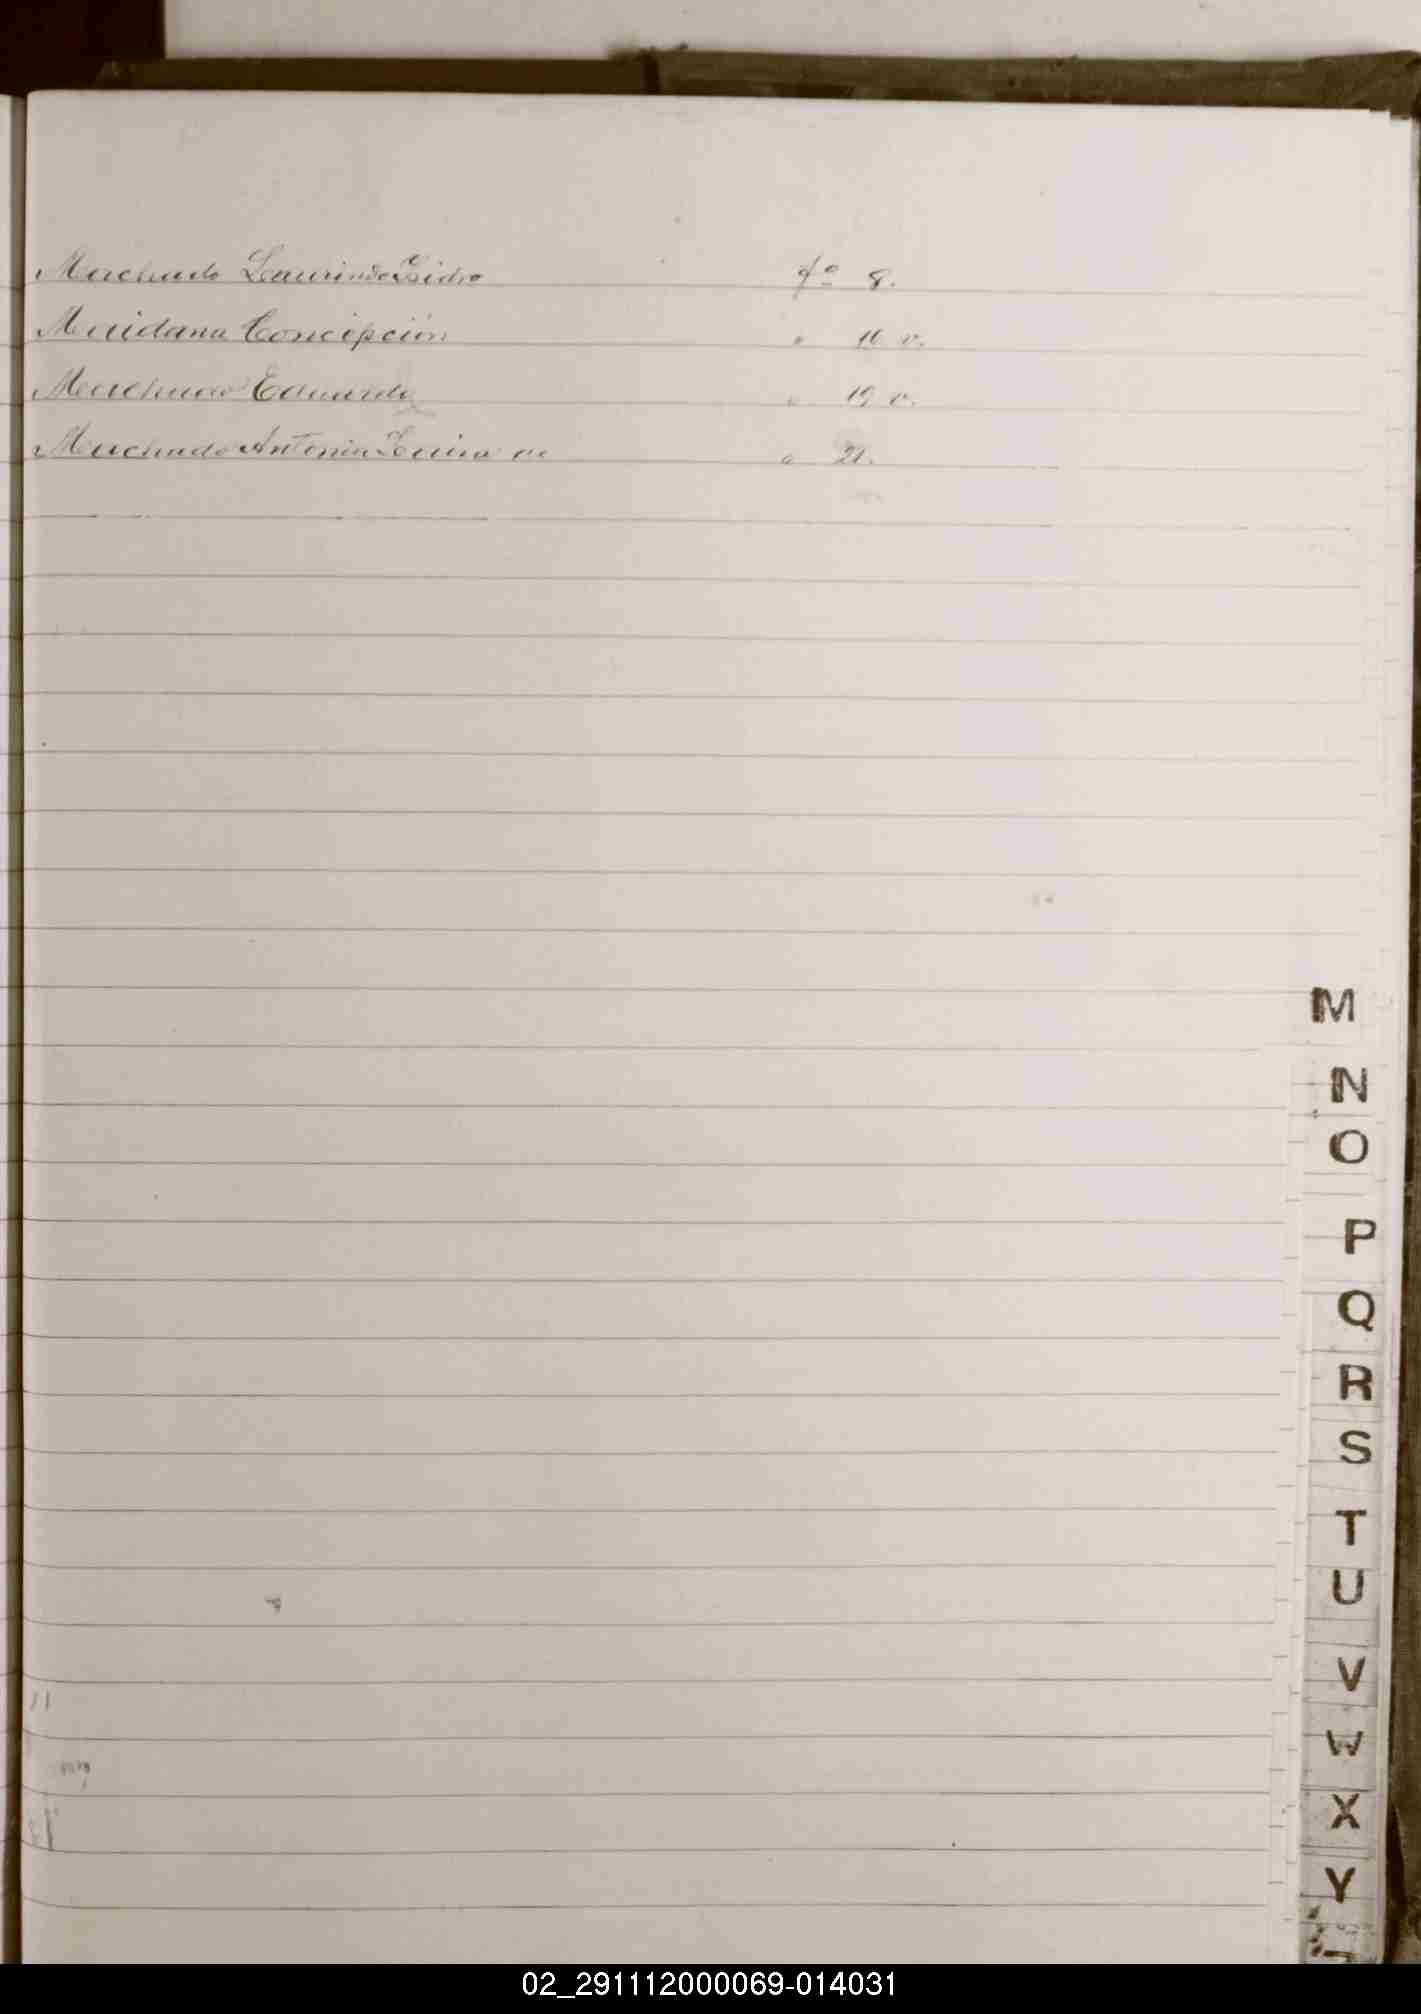 Machado Laurindo Isidro fº 8.
Maidana Concepción " 16 v.
Machado Eduardo " 19 v.
Machado Antonia de " 21.
M
N
O
P
Q
R
S
T
U
V
W
X
Y
02_291112000069-014031